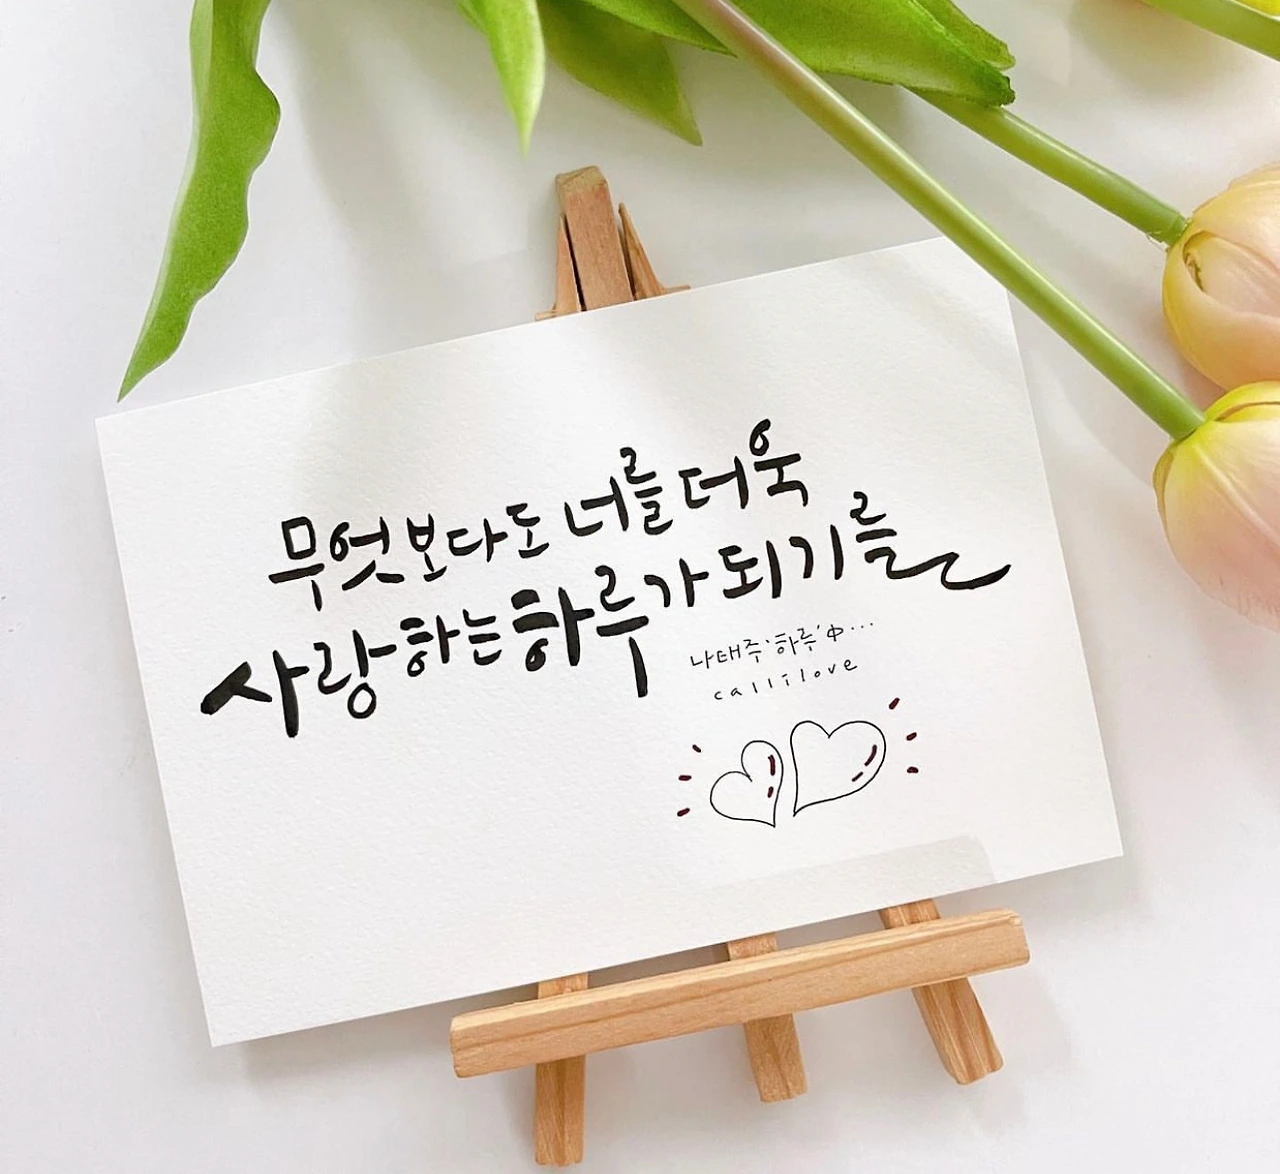 무엇보다도 너를 더욱
사랑하는 하루가 되기를
나태주 '하루' 中...
callilove